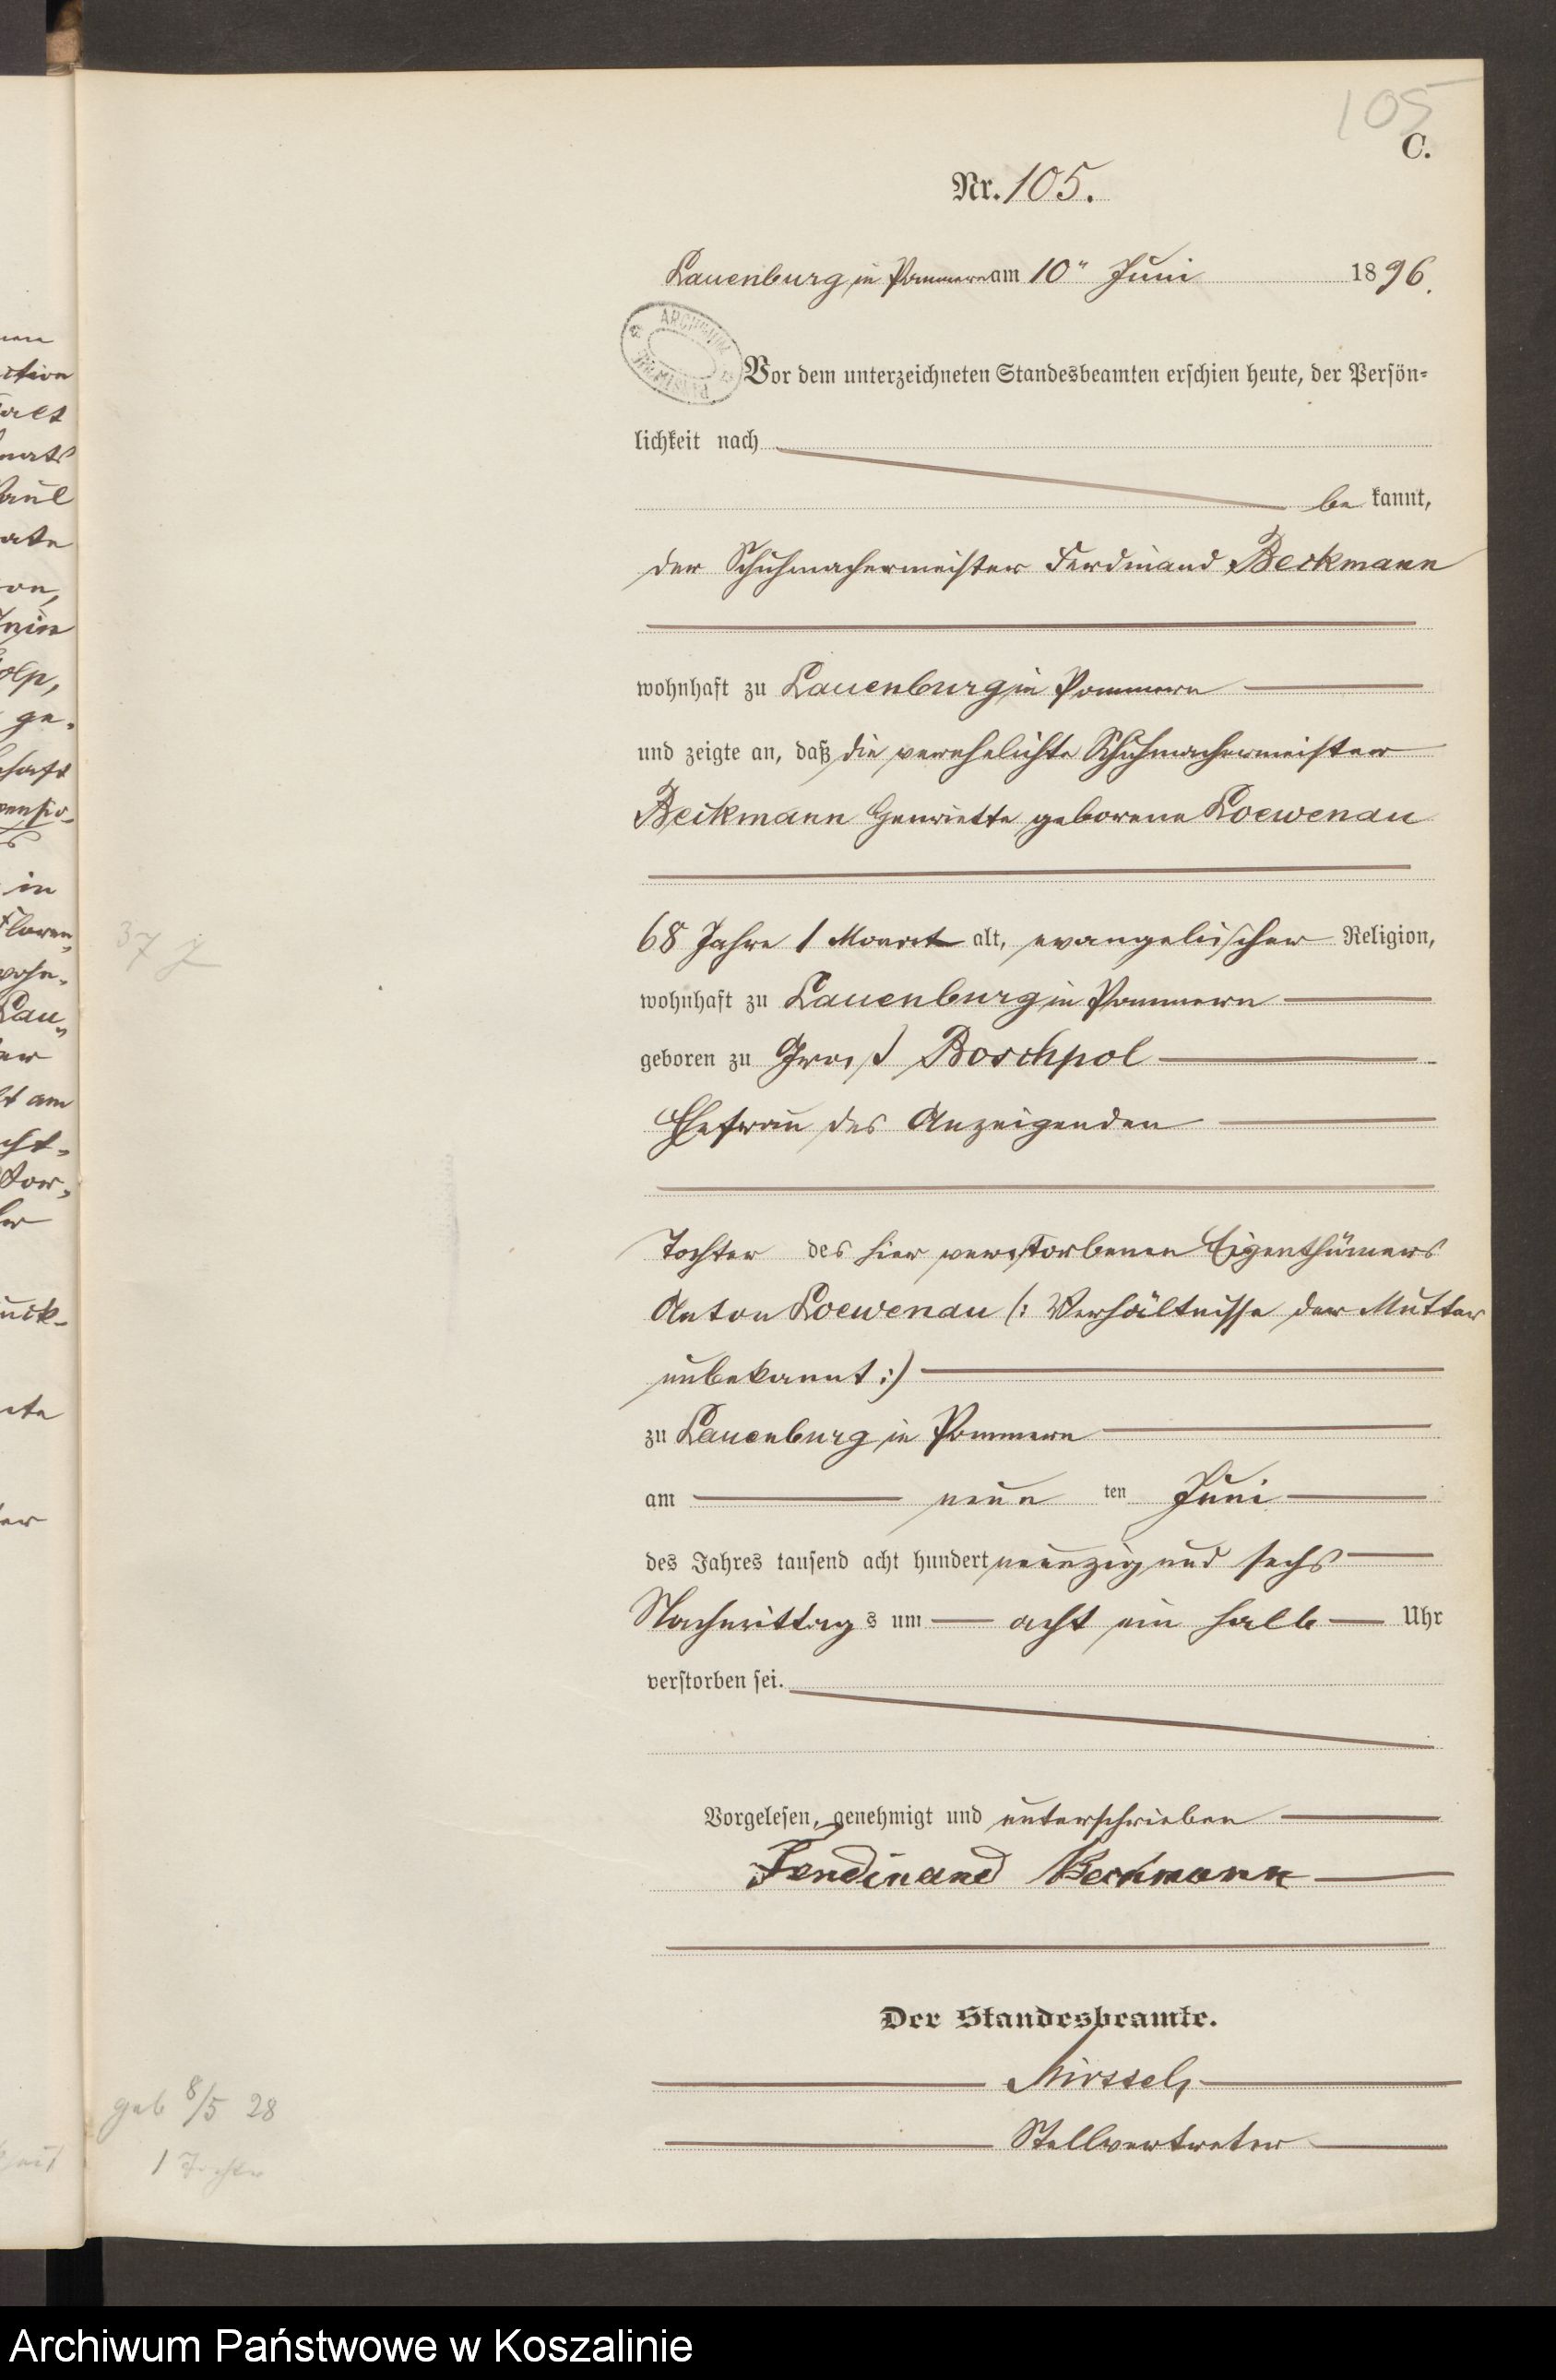 105
C.
Nr. 105.
Lauenburg in Pommern am 10" Juni 1896.
ARCHIWUM
Vor dem unterzeichneten Standesbeamten erschien heute, der Persön-
lichkeit nach
be kannt,
der Schuhmachermeister Ferdinand Beckmann
wohnhaft zu Lauenburg in Pommern
und zeigte an, daß die verehelichte Schuhmachermeister
Beckmann Henriette geborene Loewenau
68 Jahre 1 Monat alt, evangelischer Religion,
37 J
wohnhaft zu Lauenburg in Pommern
geboren zu Gross Boschpol
Ehefrau des Anzeigenden
Tochter des hier verstorbenen Eigenthümers
Anton Loewenau (: Verhältnisse der Mutter
unbekannt :)
zu Lauenburg in Pommern
am neun ten Juni
des Jahres tausend acht hundert neunzig und sechs
Nachmittags um acht ein halb Uhr
verstorben sei.
Vorgelesen, genehmigt und unterschrieben
Ferdinand Beckmann
Der Standesbeamte.
Stellvertreter
geb 8/5 28
1 Tochter
Archiwum Państwowe w Koszalinie